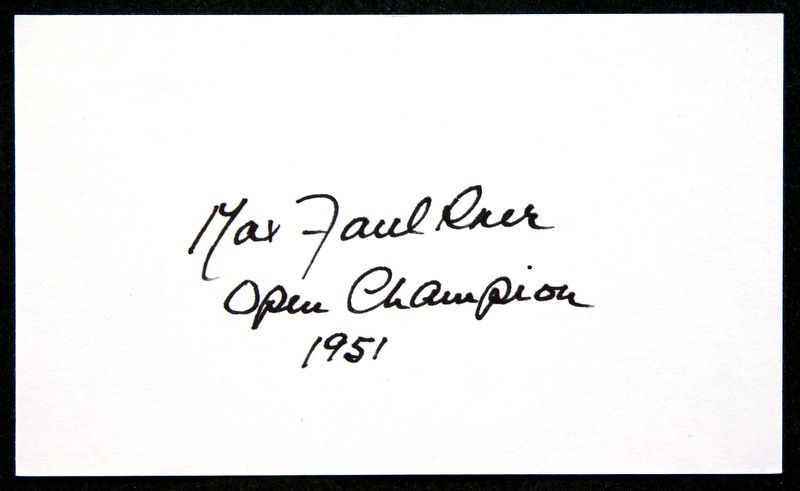 Max Faulkner
Open Champion
1951